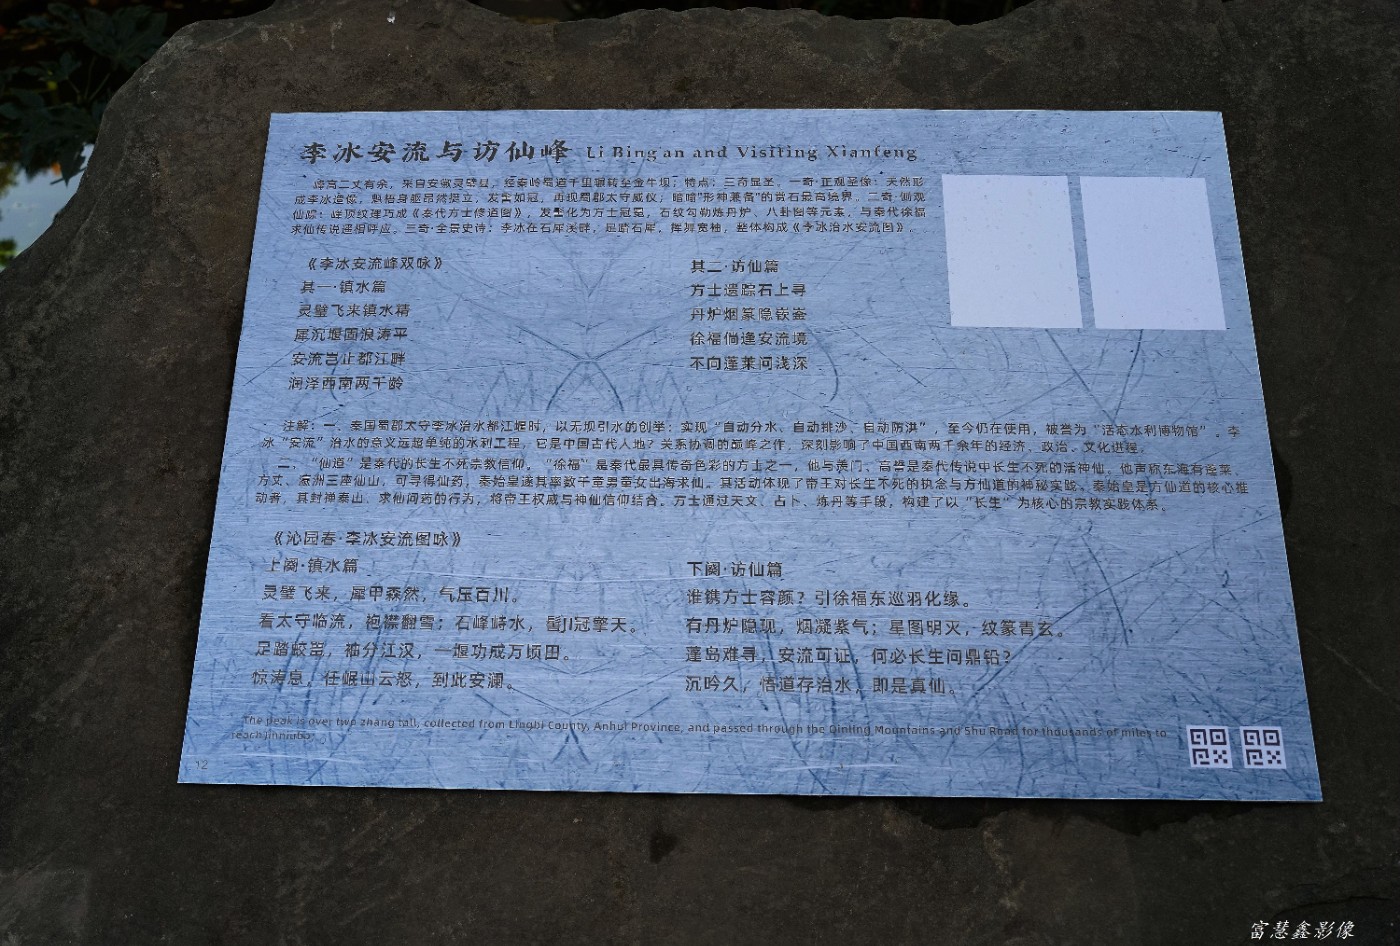 李冰安流与访仙峰 Li Bing'an and Visiting Xianfeng
峰高二丈有余，来自安徽灵璧县，经秦岭蜀道千里辗转至金牛坝；特点：三奇显圣。一奇·正观圣像：天然形
成李冰造像，魁梧身躯昂然挺立，发髻如冠，再现蜀郡太守威仪；暗喻"形神兼备"的赏石最高境界。二奇·侧观
仙踪：峰顶纹理巧成《秦代方士修道图》，发髻化为方士冠冕，石纹勾勒炼丹炉、八卦图等元素，与秦代徐福
求仙传说遥相呼应。三奇·全景史诗：李冰在石犀溪畔，足踏石犀，挥舞宽袖，整体构成《李冰治水安流图》。
《李冰安流峰双咏》
其一·镇水篇
灵璧飞来镇水精
犀沉堰固浪涛平
安流岂止都江畔
润泽西南两千龄
其二·访仙篇
方士遗踪石上寻
丹炉烟篆隐嵚崟
徐福倘逢安流境
不向蓬莱问浅深
注解：一、秦国蜀郡太守李冰治水都江堰时，以无坝引水的创举；实现"自动分水、自动排沙、自动防洪"，至今仍在使用，被誉为"活态水利博物馆"。李
冰"安流"治水的意义远超单纯的水利工程，它是中国古代人地？关系协调的巅峰之作，深刻影响了中国西南两千余年的经济、政治、文化进程。
二、"仙道"是秦代的长生不死宗教信仰。"徐福"是秦代最具传奇色彩的方士之一，他与羡门、高誓是秦代传说中长生不死的活神仙。他声称东海有蓬莱、
方丈、瀛洲三座仙山，可寻得仙药，秦始皇遂其率数千童男童女出海求仙。其活动体现了帝王对长生不死的执念与方仙道的神秘实践。秦始皇是方仙道的核心推
动者，其封禅泰山、求仙问药的行为，将帝王权威与神仙信仰结合。方士通过天文、占卜、炼丹等手段，构建了以"长生"为核心的宗教实践体系。
《沁园春·李冰安流图咏》
上阕·镇水篇
灵璧飞来，犀甲森然，气压百川。
看太守临流，袍襟翻雪；石峰峙水，冠擎天。
足踏蛟，袖分江汉，一堰功成万顷田。
惊涛息，任岷山云怒，到此安澜。
下阕·访仙篇
谁镌方士容颜？引徐福东巡羽化缘。
有丹炉隐现，烟凝紫气；星图明灭，纹篆青玄。
蓬岛难寻，安流可证，何必长生问鼎铅？
沉吟久，悟道存治水，即是真仙。
The peak is over two zhang tall, collected from Lingbi County, Anhui Province, and passed through the Qinling Mountains and Shu Road for thousands of miles to
reach Jinniuba.
12
富慧鑫影像